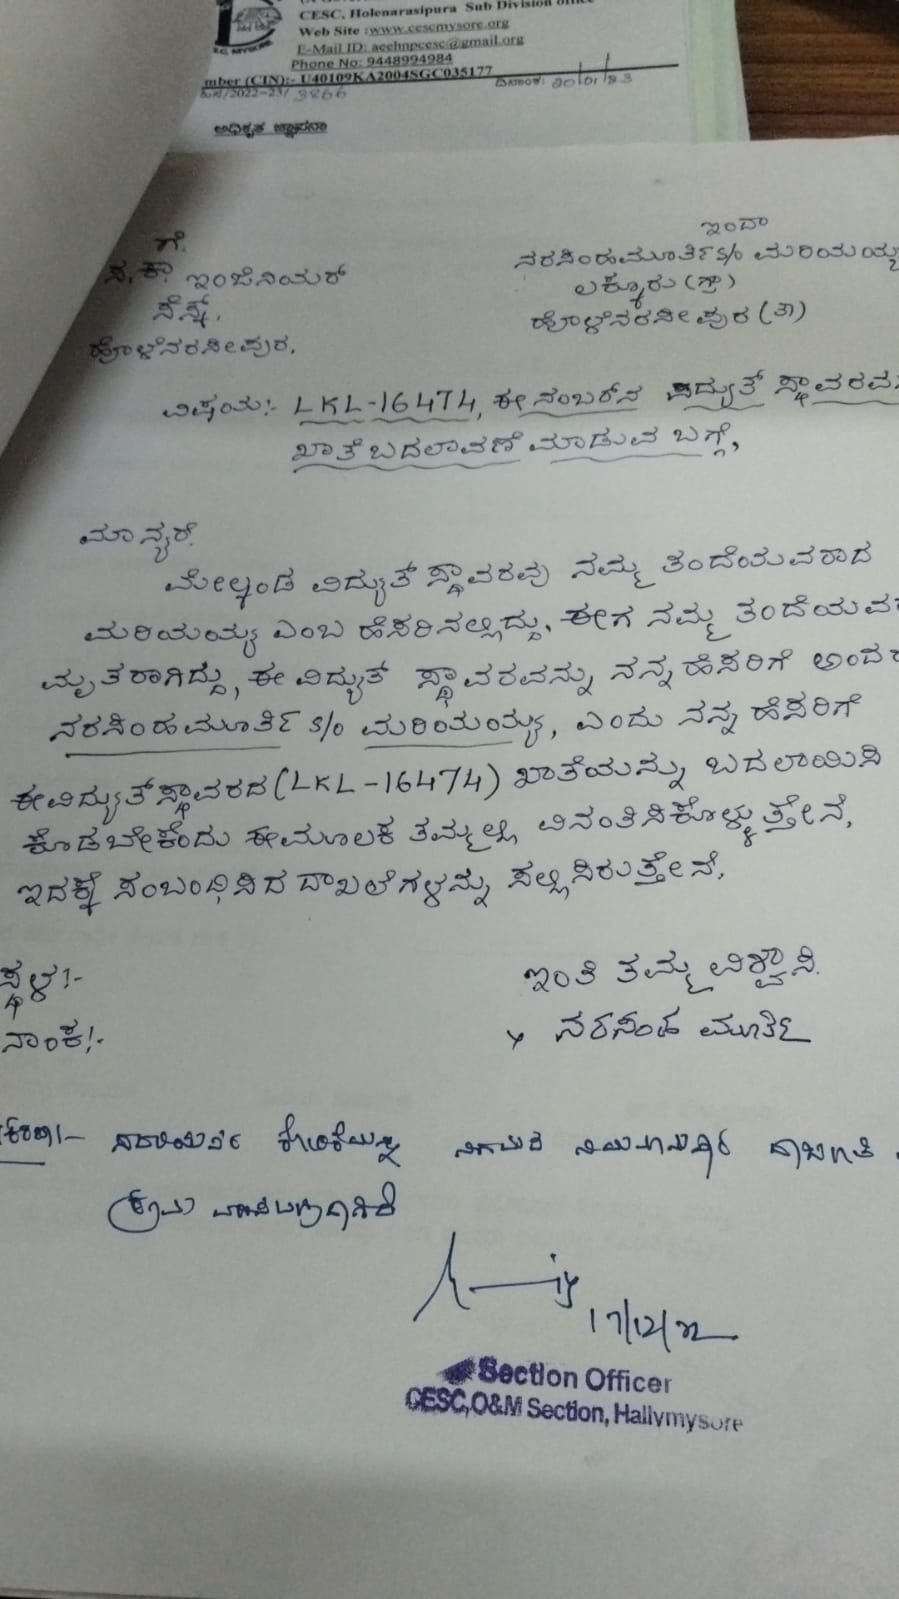 CESC, Holenarasipura Sub Division office
Web Site :www.cescmysore.org
E-Mail ID: aeehnpcesc@gmail.org
Phone No: 9448994984
mber (CIN):- U40109KA2004SGC035177
/2022-23/ 3866 ದಿನಾಂಕ: 20/01/23
ಅಧಿಕೃತ ಜ್ಞಾಪನಾ
ಗೆ. ಇಂದಾ
ಸ.ಕಾ. ಇಂಜಿನಿಯರ್ ನರಸಿಂಹಮೂರ್ತಿ S/o ಮರಿಯಯ್ಯ
ಸೆಸ್ಕ್, ಲಕ್ಕೂರು (ಗ್ರಾ)
ಹೊಳೆನರಸೀಪುರ. ಹೊಳೆನರಸೀಪುರ (ತಾ)
ವಿಷಯ:- LKL-16474, ಈ ನಂಬರ್‌ನ ವಿದ್ಯುತ್ ಸ್ಥಾವರವ
ಖಾತೆ ಬದಲಾವಣೆ ಮಾಡುವ ಬಗ್ಗೆ,
ಮಾನ್ಯರೆ.
ಮೇಲ್ಕಂಡ ವಿದ್ಯುತ್ ಸ್ಥಾವರವು ನಮ್ಮ ತಂದೆಯವರಾದ
ಮರಿಯಯ್ಯ ಎಂಬ ಹೆಸರಿನಲ್ಲಿದ್ದು. ಈಗ ನಮ್ಮ ತಂದೆಯವ
ಮೃತರಾಗಿದ್ದು, ಈ ವಿದ್ಯುತ್ ಸ್ಥಾವರವನ್ನು ನನ್ನ ಹೆಸರಿಗೆ ಅಂದರ
ನರಸಿಂಹಮೂರ್ತಿ S/o ಮರಿಯಯ್ಯ, ಎಂದು ನನ್ನ ಹೆಸರಿಗೆ
ಈ ವಿದ್ಯುತ್ ಸ್ಥಾವರದ (LKL-16474) ಖಾತೆಯನ್ನು ಬದಲಾಯಿಸಿ
ಕೊಡಬೇಕೆಂದು ಈ ಮೂಲಕ ತಮ್ಮಲ್ಲಿ ವಿನಂತಿಸಿಕೊಳ್ಳುತ್ತೇನೆ,
ಇದಕ್ಕೆ ಸಂಬಂಧಿಸಿದ ದಾಖಲೆಗಳನ್ನು ಸಲ್ಲಿಸಿರುತ್ತೇನೆ.
ಸ್ಥಳ:- ಇಂತಿ ತಮ್ಮ ವಿಶ್ವಾಸಿ.
ನಾಂಕ:- ನರಸಿಂಹ ಮೂರ್ತಿ
ಕೋರಿಕೆಯನ್ನು ನಿಗಮದ ನಿಯಮಾನುಸಾರ
17/12/22
Section Officer
CESC,O&M Section, Hallymysore